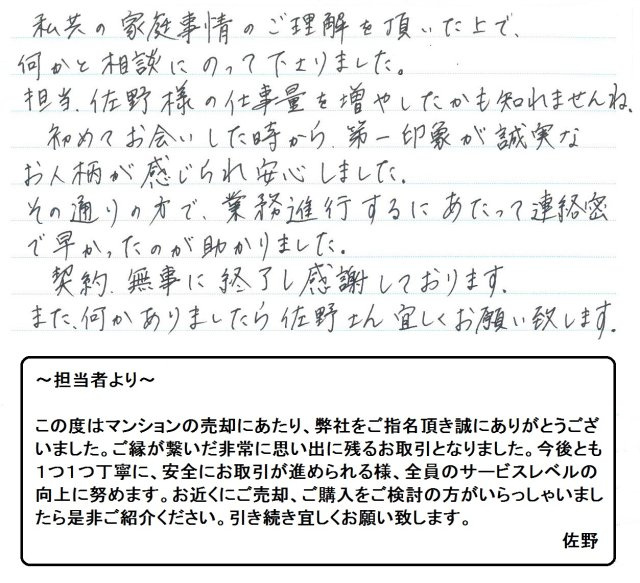 私共の家庭事情のご理解を頂いた上で、
何かと相談にのって下さりました。
担当、佐野様の仕事量を増やしたかも知れませんね。
初めてお会いした時から、第一印象が誠実な
お人柄が感じられ安心しました。
その通りの方で、業務進行するにあたって連絡密
で早かったのが助かりました。
契約、無事に終了し感謝しております。
また、何かありましたら佐野さん宜しくお願い致します。
～担当者より～
この度はマンションの売却にあたり、弊社をご指名頂き誠にありがとうござ
いました。ご縁が繋いだ非常に思い出に残るお取引となりました。今後とも
１つ１つ丁寧に、安全にお取引が進められる様、全員のサービスレベルの
向上に努めます。お近くにご売却、ご購入をご検討の方がいらっしゃいまし
たら是非ご紹介ください。引き続き宜しくお願い致します。
佐野